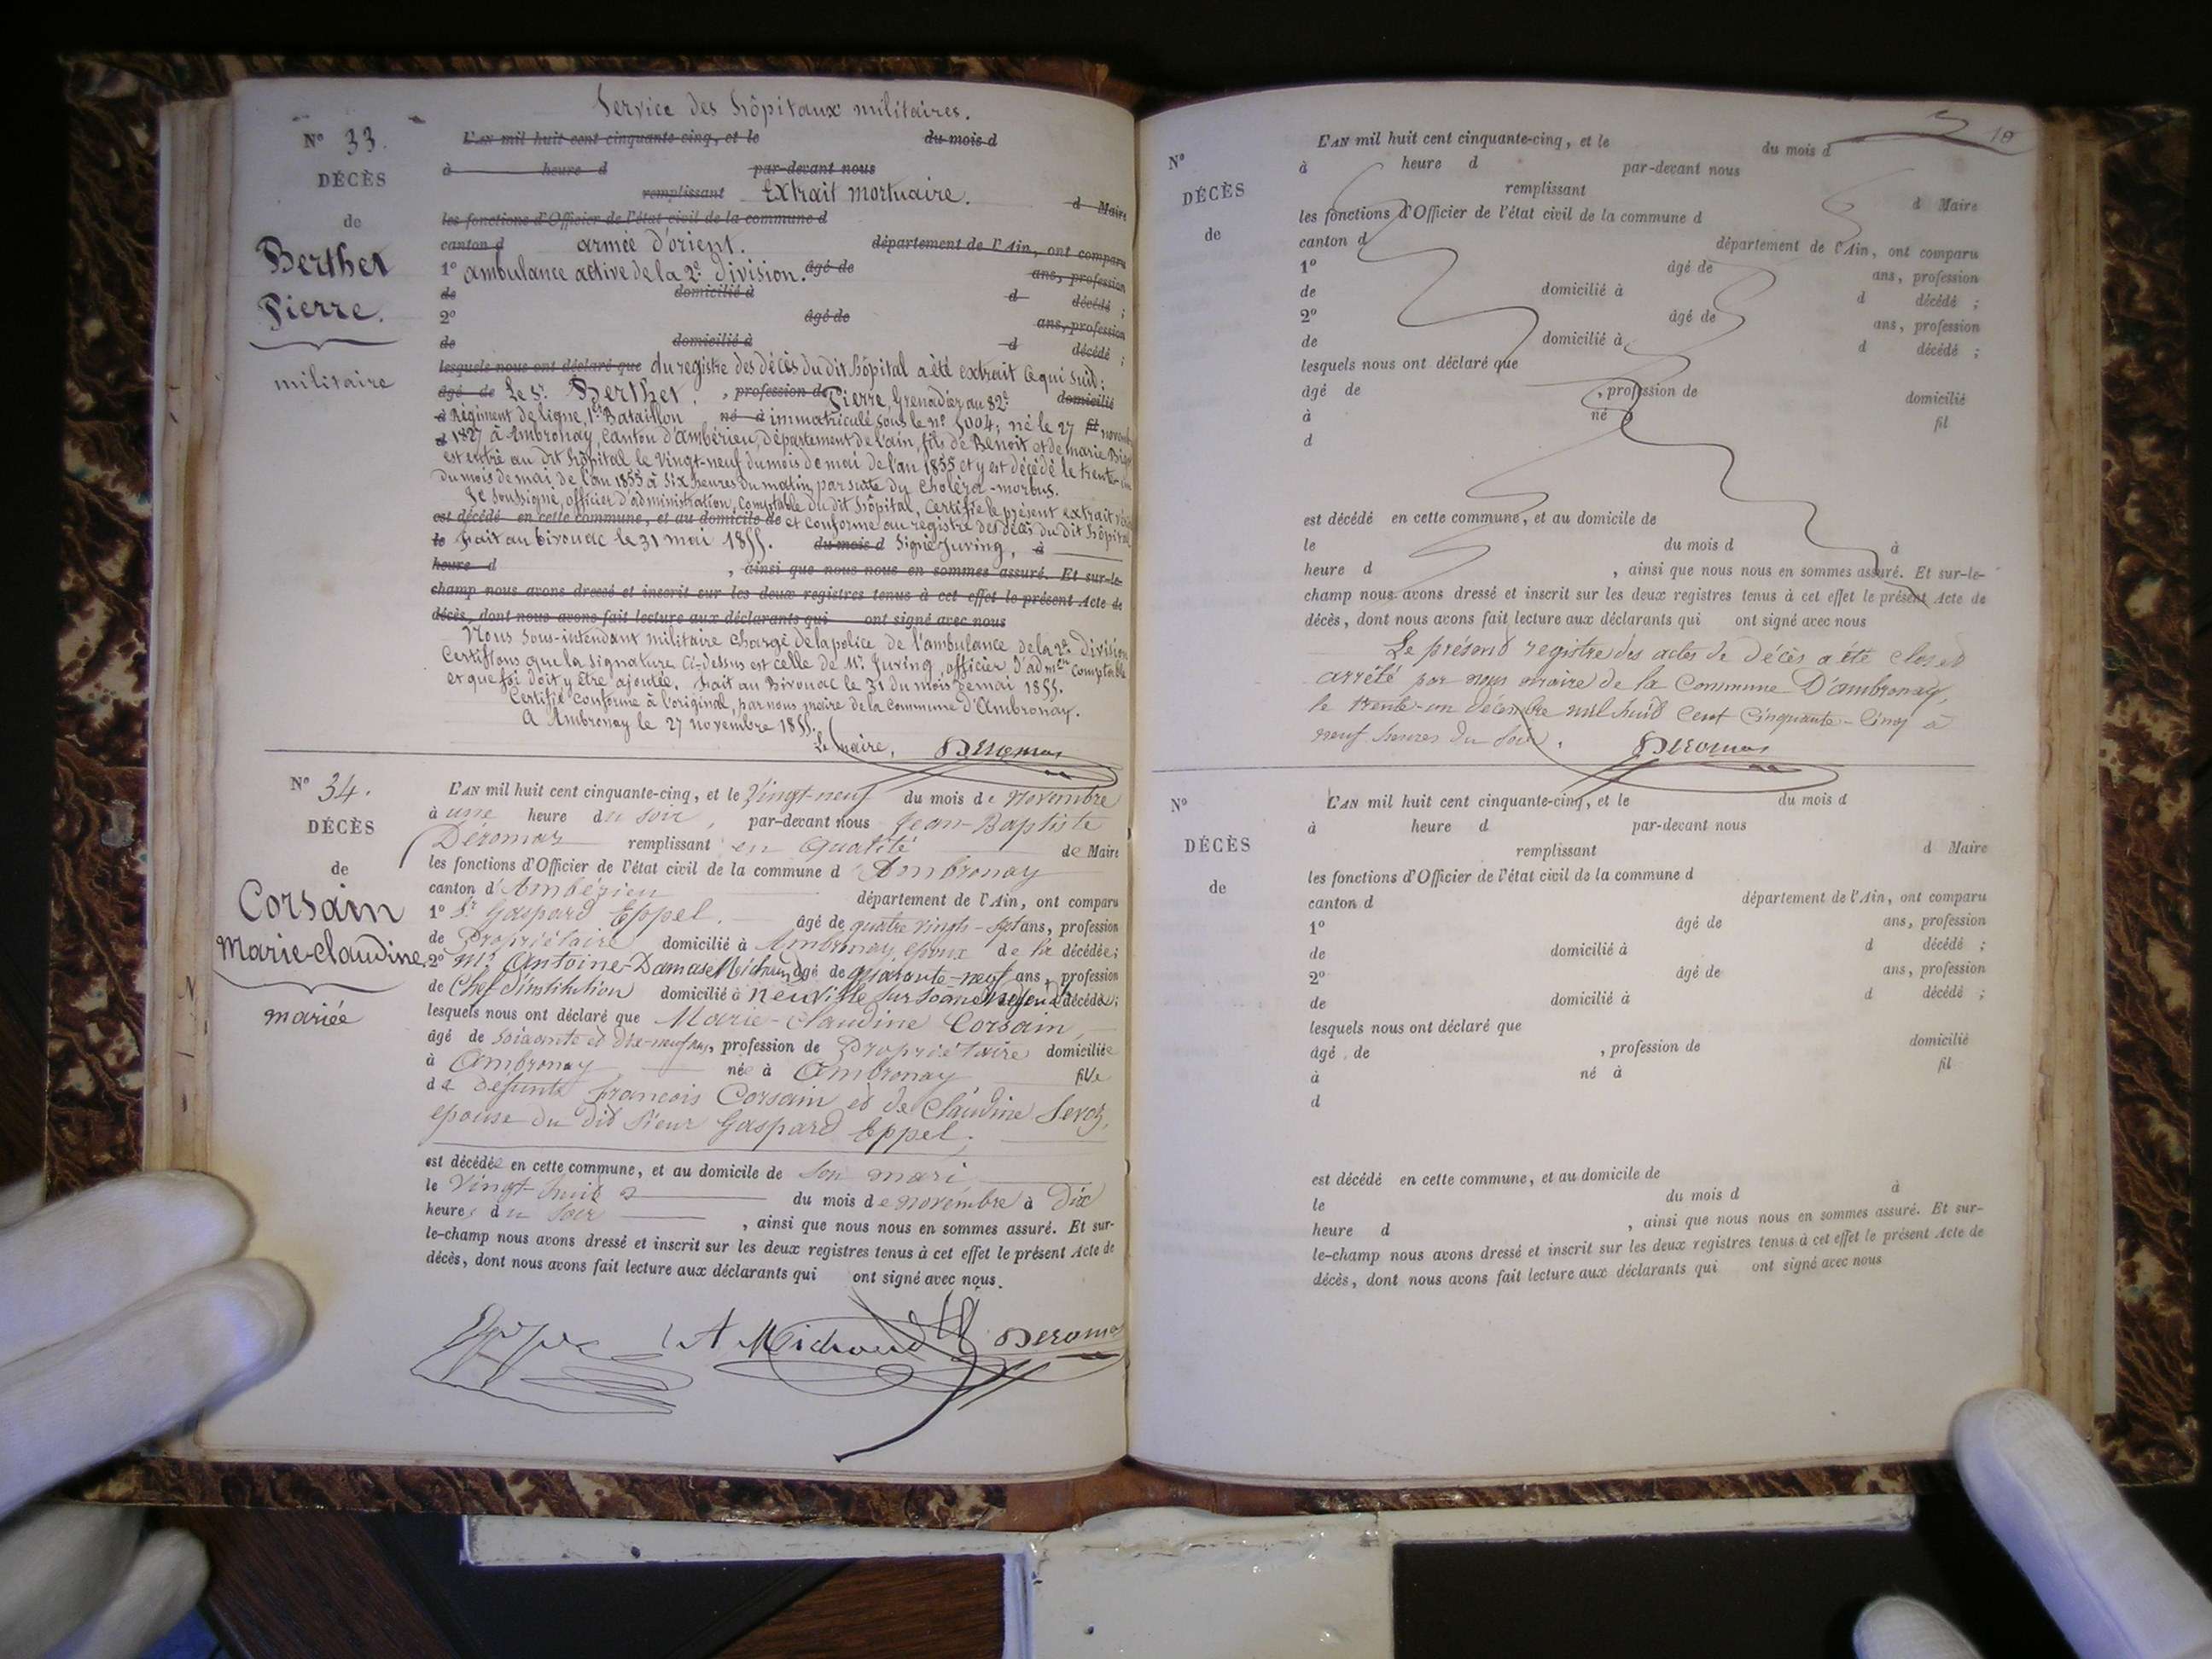 Service des hôpitaux militaires.
N° 33.
DÉCÈS
de
Berthet
Pierre.
militaire
L'AN mil huit cent cinquante-cinq, et le du mois d
à heure d par-devant nous
remplissant Extrait mortuaire. d Maire
les fonctions d'Officier de l'état civil de la commune d
canton d armée d'orient. département de l'Ain, ont comparu
1° ambulance active de la 2e division. âgé de ans, profession
de domicilié à d décédé ;
2° âgé de ans, profession
de domicilié à d décédé ;
lesquels nous ont déclaré que du registre des décès du dit hôpital a été extrait ce qui suit :
âgé de Le Sr Berthet, profession de Pierre, Grenadier au 82e domicilié
à Régiment de ligne, 1er Bataillon né à immatriculé sous le n° 5004; né le 27 fil novem
d 1827 à Ambronay, canton d'ambérieu, département de l'ain, fils de Benoit et de marie
est entré au dit hôpital le vingt-neuf du mois de mai de l'an 1855 et y est décédé le trente-
du mois de mai de l'an 1855 à six heures du matin par suite du choléra-morbus.
Je soussigné, officier d'administration, comptable du dit hôpital, certifie le présent extrait
est décédé en cette commune, et au domicile de et conforme au registre des décès du dit hôpital
le Fait au bivouac le 31 mai 1855. du mois d Signé Juving, à
heure d , ainsi que nous nous en sommes assuré. Et sur-le-
champ nous avons dressé et inscrit sur les deux registres tenus à cet effet le présent Acte de
décès, dont nous avons fait lecture aux déclarants qui ont signé avec nous
Nous sous-intendant militaire chargé de la police de l'ambulance de la 2e division
Certifions que la signature ci-dessus est celle de Mr. Juving, officier d'admon comptable
et que foi doit y être ajoutée. Fait au Bivouac le 31 du mois de mai 1855.
Certifié conforme à l'original, par nous maire de la commune d'Ambronay.
A Ambronay le 27 novembre 1855.
Le maire, Deromas
N° 34.
DÉCÈS
de
Corsain
Marie-claudine
mariée
L'AN mil huit cent cinquante-cinq, et le Vingt-neuf du mois de novembre
à une heure du soir, par-devant nous Jean-Baptiste
Déromas remplissant en qualité de Maire
les fonctions d'Officier de l'état civil de la commune d'Ambronay
canton d'Ambérieu département de l'Ain, ont comparu
1° Sr Gaspard Eppel. âgé de quatre vingt-sept ans, profession
de Propriétaire domicilié à Ambronay, époux de la décédée;
2° Mr. Antoine-Damase Michaud âgé de quarante-neuf ans, profession
de Chef d'institution domicilié à neuville sur Saone neveu d décédée;
lesquels nous ont déclaré que Marie-Claudine Corsain,
âgé de soixante et dix-neuf ans, profession de Propriétaire domiciliée
à Ambronay née à Ambronay fille
de défunts François Corsain et de Claudine Sevoz,
épouse du dit Sieur Gaspard Eppel;
est décédée en cette commune, et au domicile de son mari,
le Vingt-huit du mois de novembre à Dix
heures du Soir , ainsi que nous nous en sommes assuré. Et sur-
le-champ nous avons dressé et inscrit sur les deux registres tenus à cet effet le présent Acte de
décès, dont nous avons fait lecture aux déclarants qui ont signé avec nous.
Eppel A Michaud Deromas
18
N°
DÉCÈS
de
L'AN mil huit cent cinquante-cinq, et le du mois d
à heure d par-devant nous
remplissant d Maire
les fonctions d'Officier de l'état civil de la commune d
canton d département de l'Ain, ont comparu
1° âgé de ans, profession
de domicilié à d décédé ;
2° âgé de ans, profession
de domicilié à d décédé ;
lesquels nous ont déclaré que
âgé de , profession de domicilié
à né à fil
d
est décédé en cette commune, et au domicile de
le du mois d à
heure d , ainsi que nous nous en sommes assuré. Et sur-le-
champ nous avons dressé et inscrit sur les deux registres tenus à cet effet le présent Acte de
décès, dont nous avons fait lecture aux déclarants qui ont signé avec nous
Le présent registre des actes de décès a été clos et
arrêté par nous maire de la Commune D'ambronay,
le trente-un décembre mil huit cent cinquante-cinq à
neuf heures du soir. Deromas
N°
DÉCÈS
de
L'AN mil huit cent cinquante-cinq, et le du mois d
à heure d par-devant nous
remplissant d Maire
les fonctions d'Officier de l'état civil de la commune d
canton d département de l'Ain, ont comparu
1° âgé de ans, profession
de domicilié à d décédé ;
2° âgé de ans, profession
de domicilié à d décédé ;
lesquels nous ont déclaré que
âgé de , profession de domicilié
à né à fil
d
est décédé en cette commune, et au domicile de
le du mois d à
heure d , ainsi que nous nous en sommes assuré. Et sur-
le-champ nous avons dressé et inscrit sur les deux registres tenus à cet effet le présent Acte de
décès, dont nous avons fait lecture aux déclarants qui ont signé avec nous